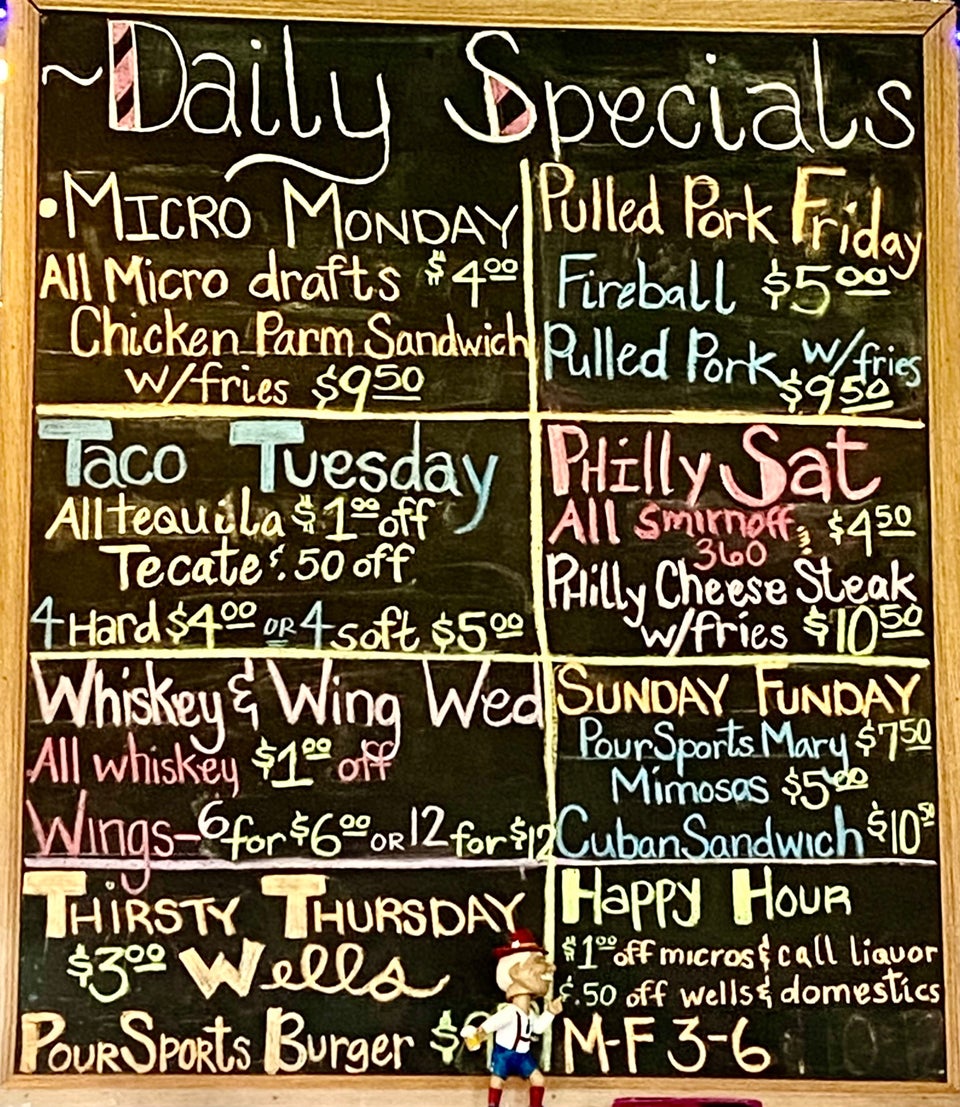 ~Daily Specials
•MICRO MONDAY
All Micro drafts $4.00
Chicken Parm Sandwich
w/fries $9.50
Taco Tuesday
All tequila $1.00 off
Tecate $.50 off
4 Hard $4.00 OR 4 soft $5.00
Whiskey & Wing Wed
All whiskey $1.00 off
Wings-6 for $6.00 OR 12 for $12
THIRSTY THURSDAY
$3.00 Wells
POURSPORTS Burger
Pulled Pork Friday
Fireball $5.00
Pulled Pork w/fries
$9.50
PHilly Sat
All Smirnoff & $4.50
360
PHilly Cheese Steak
w/fries $10.50
SUNDAY FUNDAY
PourSports Mary $7.50
Mimosas $5.00
Cuban Sandwich $10.50
Happy Hour
$1.00 off micros & call liquor
$.50 off wells & domestics
M-F 3-6